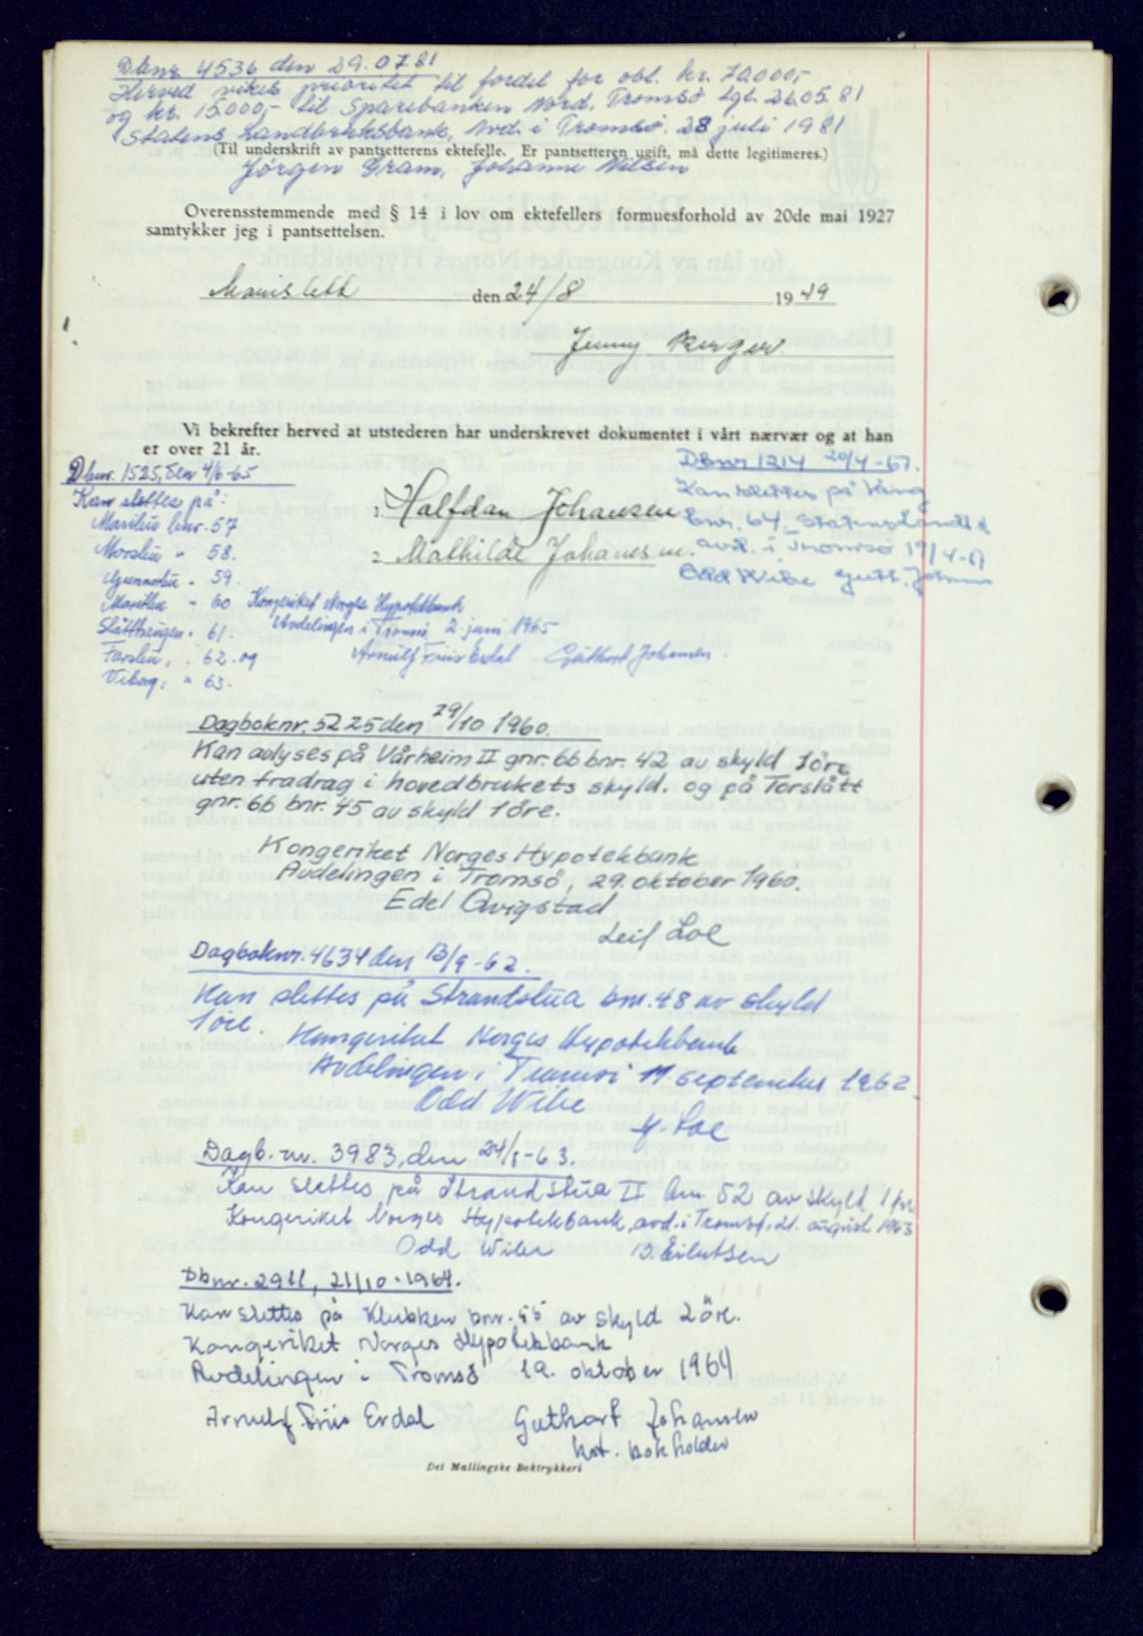 Dbnr 4536 den 29.07.81
Herved vikes prioritet til fordel for obl. kr. 70.000,-
og kr. 15.000,- til Sparebanken Nord, Tromsö tgl. 26.05.81
Statens Landbruksbank, Avd. i Tromsö. 28 juli 1981
(Til underskrift av pantsetterens ektefelle. Er pantsetteren ugift, må dette legitimeres.)
Jörgen Gram, Johanne Nilsen
Overensstemmende med § 14 i lov om ektefellers formuesforhold av 20de mai 1927
samtykker jeg i pantsettelsen.
den 24/8 1949
Jenny
Vi bekrefter herved at utstederen har underskrevet dokumentet i vårt nærvær og at han
er over 21 år.
Dbnr. 1525, den 4/6-65
Kan slettes på:
bnr. 57
" 58.
" 59.
" 60
" 61.
" 62. og
Viborg, " 63.
Kongeriket Norges Hypotekbank
Avdelingen i Tromsö, 2. juni 1965
Arnulf Friis Erdal Guthorf Johansen
1 Halfdan Johansen
2 Mathilde
Dbnr 1214 20/4-67.
Kan slettes på
bnr. 64. Statens
avd. i Tromsö 19/4-67
Odd Wibe Guth. Johans
Dagboknr. 5225 den 29/10 1960.
Kan avlyses på Vårheim II gnr. 66 bnr. 42 av skyld 1 öre
uten fradrag i hovedbrukets skyld. og på Torslått
gnr. 66 bnr. 45 av skyld 1 öre.
Kongeriket Norges Hypotekbank
Avdelingen i Tromsö, 29. oktober 1960.
Edel Qvigstad
Leif Loe
Dagboknr. 4634 den 13/9-62.
Kan slettes på Strandstua bnr. 48 av skyld
1 öre.
Kongeriket Norges Hypotekbank
Avdelingen i Tromsö 11. september 1962.
Odd Wibe
Loe
Dagb. nr. 3983, den 24/8-63.
Kan slettes på Strandstua II bnr 52 av skyld 1 öre
Kongeriket Norges Hypotekbank, avd. i Tromsö, 21. august 1963
Odd Wibe B. Eilertsen
Dbnr. 2911, 21/10-1964.
Kan slettes på Klubben bnr. 55 av skyld 2 öre.
Kongeriket Norges Hypotekbank
Avdelingen i Tromsö 19. oktober 1964
Arnulf Friis Erdal Guthorf Johansen
kst. bokholder
Det Mallingske Boktrykkeri